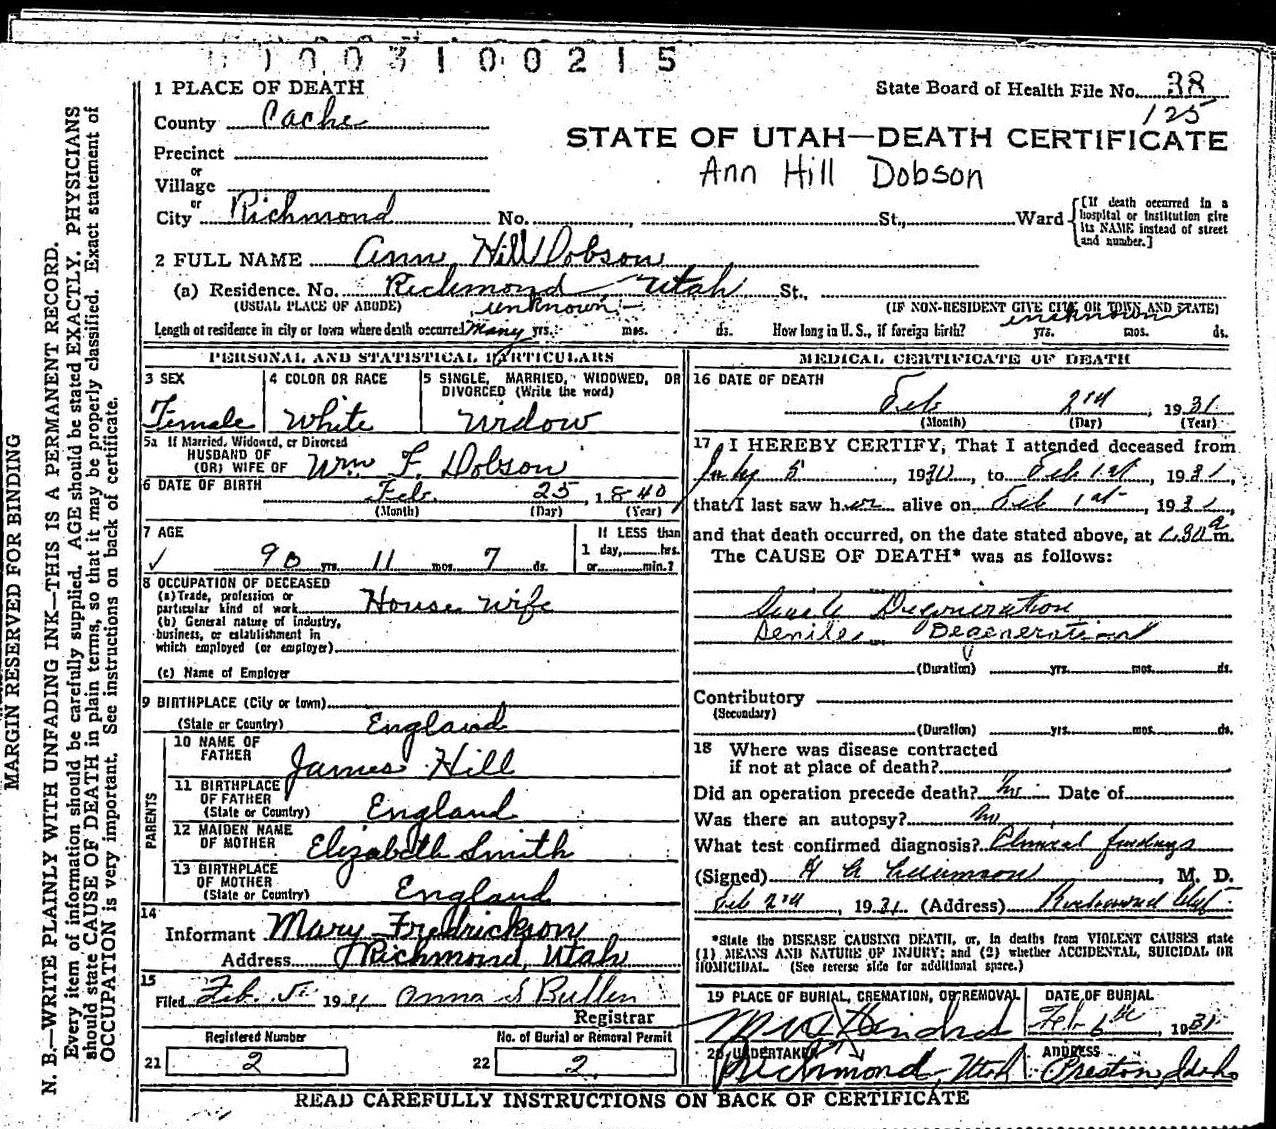 0 0 3 1 0 0 2 1 5
1 PLACE OF DEATH
State Board of Health File No. 38
125
County Cache
STATE OF UTAH—DEATH CERTIFICATE
Precinct
or
Village
Ann Hill Dobson
or
City Richmond No. , St., Ward
[If death occurred in a hospital or institution give its NAME instead of street and number.]
2 FULL NAME Ann Hill Dobson
(a) Residence. No. Richmond Utah St.,
(USUAL PLACE OF ABODE) unknown (IF NON-RESIDENT GIVE CITY OR TOWN AND STATE)
Length of residence in city or town where death occurred Many yrs. mos. ds. How long in U. S., if foreign birth? unknown yrs. mos. ds.
PERSONAL AND STATISTICAL PARTICULARS
3 SEX
Female
4 COLOR OR RACE
White
5 SINGLE, MARRIED, WIDOWED, OR DIVORCED (Write the word)
Widow
5a If Married, Widowed, or Divorced
HUSBAND OF
(OR) WIFE OF Wm F. Dobson
6 DATE OF BIRTH Feb. 25, 1840
(Month) (Day) (Year)
7 AGE
90 yrs. 11 mos. 7 ds.
If LESS than
1 day, hrs.
or min.?
8 OCCUPATION OF DECEASED
(a) Trade, profession or
particular kind of work House wife
(b) General nature of industry,
business, or establishment in
which employed (or employer)
(c) Name of Employer
9 BIRTHPLACE (City or town)
(State or Country) England
PARENTS
10 NAME OF
FATHER James Hill
11 BIRTHPLACE
OF FATHER
(State or Country) England
12 MAIDEN NAME
OF MOTHER Elizabeth Smith
13 BIRTHPLACE
OF MOTHER
(State or Country) England
14
Informant Mary Fredrickson
Address Richmond, Utah
15
Filed Feb. 19 31 Anna S Bullen
Registrar
Registered Number
21 2
No. of Burial or Removal Permit
22 2
MEDICAL CERTIFICATE OF DEATH
16 DATE OF DEATH
Feb 2nd, 1931
(Month) (Day) (Year)
17 I HEREBY CERTIFY, That I attended deceased from
July 5, 1930, to Feb 1st, 1931,
that I last saw her alive on Feb 1st, 1931,
and that death occurred, on the date stated above, at 30 a m.
The CAUSE OF DEATH* was as follows:
Senile Degeneration
Senile Degeneration
(Duration) yrs. mos. ds.
Contributory
(Secondary)
(Duration) yrs. mos. ds.
18 Where was disease contracted
if not at place of death?
Did an operation precede death? No Date of
Was there an autopsy? No
What test confirmed diagnosis? Clinical findings
(Signed) , M. D.
Feb 2nd, 1931 (Address) Richmond Utah
*State the DISEASE CAUSING DEATH, or, in deaths from VIOLENT CAUSES state
(1) MEANS AND NATURE OF INJURY; and (2) whether ACCIDENTAL, SUICIDAL OR
HOMICIDAL. (See reverse side for additional space.)
19 PLACE OF BURIAL, CREMATION, OR REMOVAL
DATE OF BURIAL
Feb 6th, 1931
20 UNDERTAKER
Richmond, Utah
ADDRESS
Preston, Idaho
READ CAREFULLY INSTRUCTIONS ON BACK OF CERTIFICATE
MARGIN RESERVED FOR BINDING
N. B.—WRITE PLAINLY WITH UNFADING INK—THIS IS A PERMANENT RECORD.
Every item of information should be carefully supplied. AGE should be stated EXACTLY. PHYSICIANS
should state CAUSE OF DEATH in plain terms, so that it may be properly classified. Exact statement of
OCCUPATION is very important. See instructions on back of certificate.